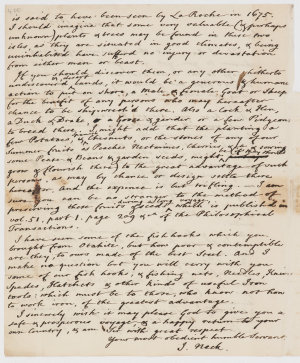 is said to have been seen by La Roche in 1675.
I should imagine that some very valuable (& perhaps
unknown) plants & trees may be found in these two
isles, as they are situated in good climates, & being
uninhabited have suffered no injury or devastation
from either man or beast.
If you should discover them, or any other hitherto
undiscovered lands, it would be a generous & humane
action to put on shore, a Male & female goat or Sheep
for the benefit of any persons who may hereafter
chance to be shipwreck'd there. Also a Cock & Hen,
a Duck & Drake, a Goose & gander or a few Pidgeons
to breed there. I might add that the planting a
few Potatoes, & the nuts, or the stones of any
Sound fruits as Peaches Nectarines, cherries,
some Pease & Beans & garden seeds, might
grow & flourish there to the great advantage of such
persons, as may by chance or design settle there
hereafter. And the expence is but trifling. — I am
sure you can be no stranger to the method of
preserving is published in
vol. 51. part 1. page 209 &c of the Philosophical
Transactions.
I have seen some of the fishhooks which you
brought from Otaheite, but how poor & contemptible
are they, to ours made of the best Steel. And I
make no question but you will carry with you
some of our fish hooks, & fishing nets, Needles,
Spades, Hatchets & other kinds of usefull Iron
tools; which must be to those, who have not how
to work iron, of the greatest advantage.
I sincerely wish it may please God to give you a
safe & prosperous voyage, & a happy return to your
own Country, & am Sir with great respect
Your most obedient humble Servant,
J. Neck.